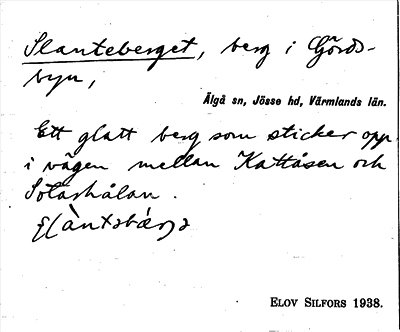 Slanteberget, berg i Görds-
byn,
Älgå sn, Jösse hd, Värmlands län.
Ett glatt berg som sticker opp
i vägen mellan Kattåsen och
Sotarhålan.
ELOV SILFORS 1938.